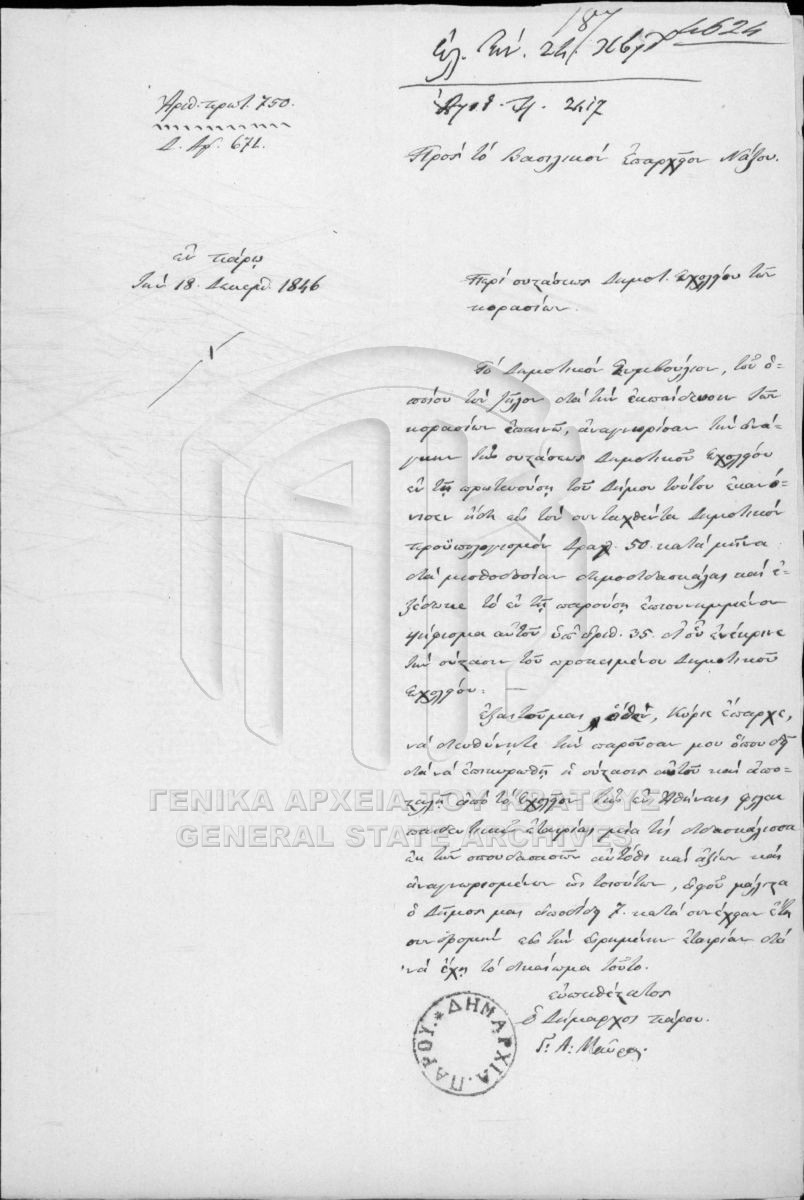 187
4624
Ἀριθ. πρωτ. 750.
Δ. Ἀρ. 671.
Ἀριθ. 2417
Πρὸς τὸ Βασιλικὸν Ἐπαρχεῖον Νάξου.
ἐν Πάρῳ
τὴν 18. Δεκεμβ. 1846
Περὶ συστάσεως Δημοτ. Σχολείου τῶν
κορασίων.
Τὸ Δημοτικὸν Συμβούλιον, τοῦ ὁ-
ποίου τὸν ζῆλον διὰ τὴν ἐκπαίδευσιν τῶν
κορασίων ἐπαινῶ, ἀναγνωρίσαν τὴν ἀνά-
γκην τῆς συστάσεως Δημοτικοῦ Σχολείου
ἐν τῇ πρωτευούσῃ τοῦ Δήμου τούτου ἐκανό-
νισεν ἤδη εἰς τὸν συνταχθέντα Δημοτικὸν
προϋπολογισμὸν Δραχ. 50. κατὰ μῆνα
διὰ μισθοδοσίαν δημοδιδασκάλας καὶ ἐ-
ξέδωκε τὸ ἐν τῇ παρούσῃ ἐπισυνημμένον
ψήφισμα αὐτοῦ ὑπ' ἀριθ. 35. δι' οὗ ἐνέκρινε
τὴν σύστασιν τοῦ προκειμένου Δημοτικοῦ
Σχολείου. —
Ἐξαιτοῦμαι ὅθεν, Κύριε Ἔπαρχε,
νὰ διευθύνητε τὴν παροῦσάν μου ὅπου δεῖ
διὰ νὰ ἐπικυρωθῇ ἡ σύστασις αὐτοῦ καὶ ἀπο-
σταλῇ ἀπὸ τὸ Σχολεῖον τῆς ἐν Ἀθήναις φιλεκ
παιδευτικῆς ἑταιρίας μία τὶς διδασκάλισσα
ἐκ τῶν σπουδασασῶν αὐτόθι καὶ ἀξίων καὶ
ἀναγνωρισμένων ὡς τοιούτων, ἀφοῦ μάλιστα
ὁ Δῆμός μας ἀποδίδει 7. κατὰ συνέχειαν ἔτη
συνδρομὴν εἰς τὴν εἰρημένην ἑταιρίαν διὰ
νὰ ἔχῃ τὸ δικαίωμα τοῦτο.
εὐπειθέστατος
ὁ Δήμαρχος Πάρου.
Γ. Α. Μαῦρος.
ΔΗΜΑΡΧΙΑ. ΠΑΡΟΥ.
ΓΕΝΙΚΑ ΑΡΧΕΙΑ ΤΟΥ ΚΡΑΤΟΥΣ
GENERAL STATE ARCHIVES